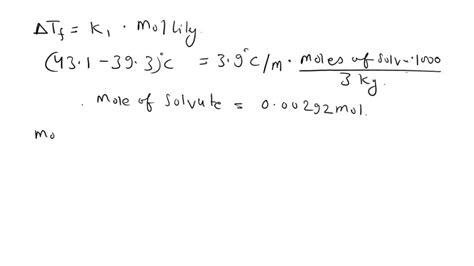 ΔTf = K₁ · mollily
(43.1 - 39.3)°c = 3.9°c/m · moles of solv. · 1000 / 3 kg.
. Mole of Solvute = 0.00292 mol.
mo